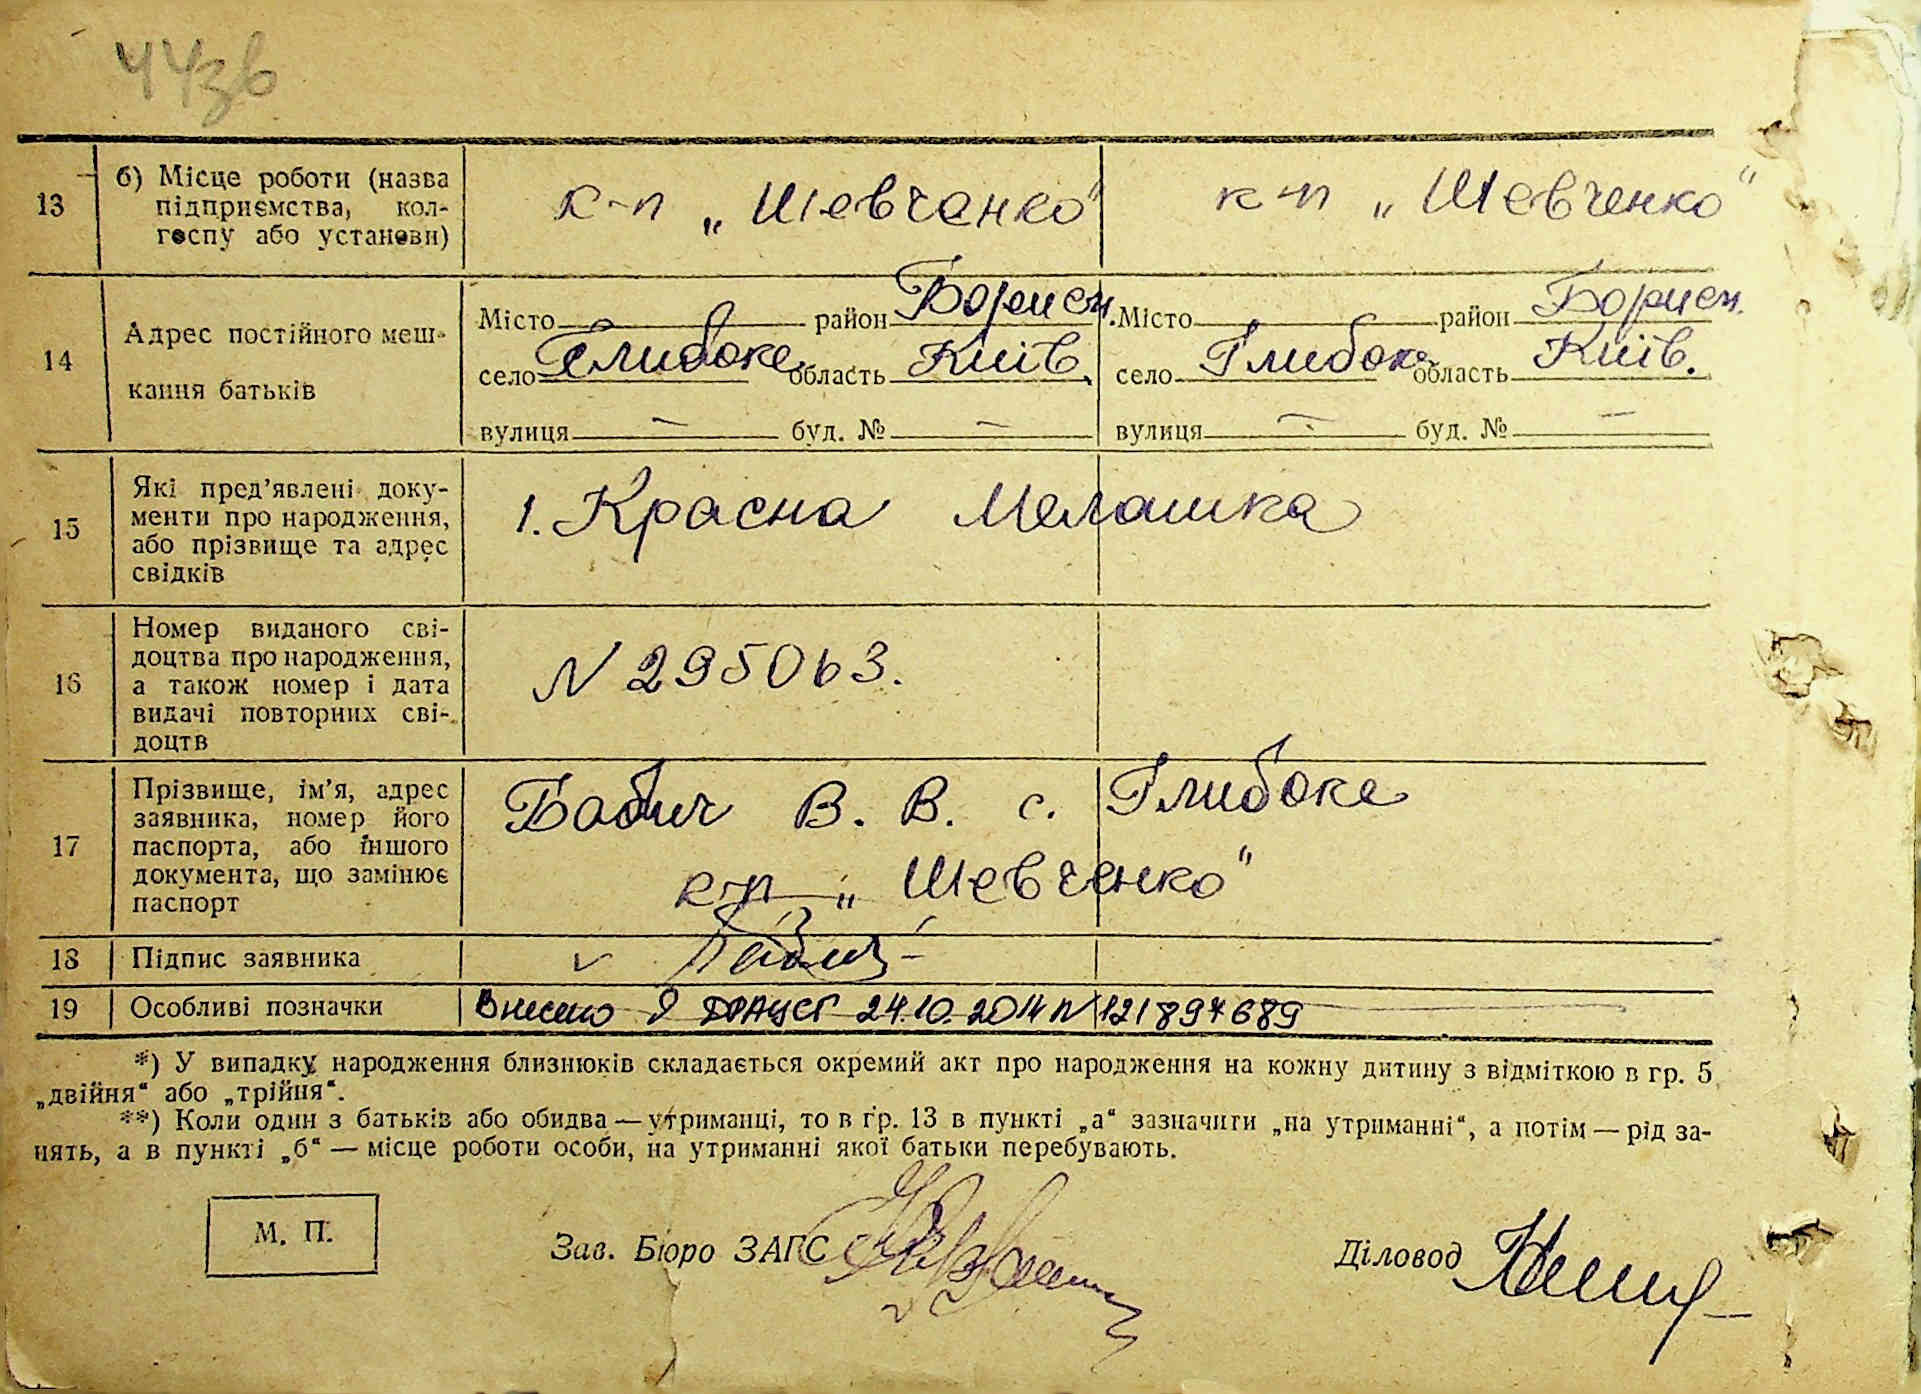 13 б) Місце роботи (назва підприємства, кол-
госпу або установи)
к-п „Шевченко" к-п „Шевченко"
14 Адрес постійного меш-
кання батьків
Місто район Борисп. Місто район Борисп.
село Глибоке область Київ. село Глибоке область Київ.
вулиця — буд. № — вулиця — буд. № —
15 Які пред'явлені доку-
менти про народження,
або прізвище та адрес
свідків
1. Красна Мелашка
16 Номер виданого сві-
доцтва про народження,
а також номер і дата
видачі повторних сві-
доцтв
N 295063.
17 Прізвище, ім'я, адрес
заявника, номер його
паспорта, або іншого
документа, що замінює
паспорт
Бабич В. В. с. Глибоке
к-п „Шевченко"
18 Підпис заявника
19 Особливі позначки Внесено в ДРАЦСГ 24.10.2014 N 121897689
*) У випадку народження близнюків складається окремий акт про народження на кожну дитину з відміткою в гр. 5
„двійня" або „трійня".
**) Коли один з батьків або обидва — утриманці, то в гр. 13 в пункті „а" зазначити „на утриманні", а потім — рід за-
нять, а в пункті „б" — місце роботи особи, на утриманні якої батьки перебувають.
М. П. Зав. Бюро ЗАГС Діловод